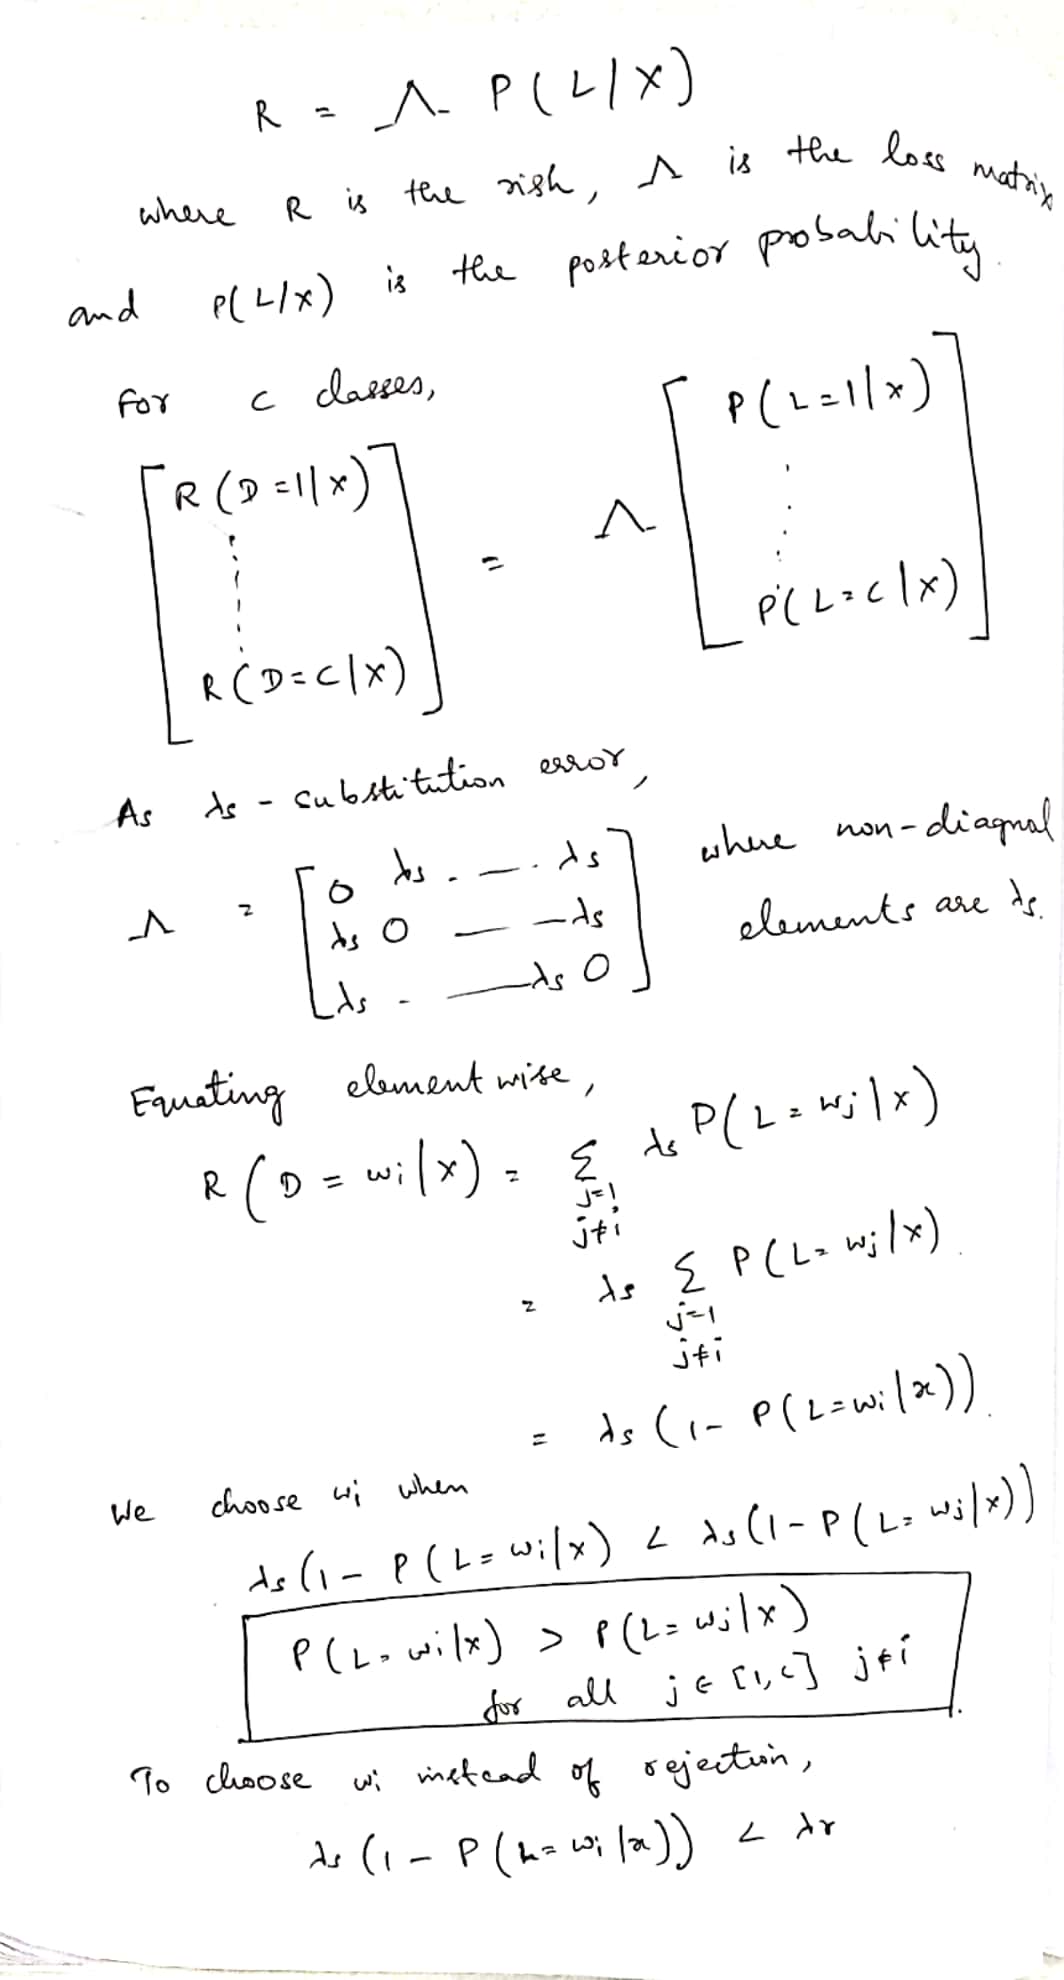 R = Λ P(L|X)
where R is the risk, Λ is the loss matrix
and P(L/x) is the posterior probability.
For c classes,
[R(D=1|x) ⋮ R(D=c|x)] = Λ [P(L=1|x) ⋮ P(L=c|x)]
As λs - substitution error,
Λ = [0 λs . — . λs
λs 0 — — λs
λs - — λs 0] where non-diagnal
elements are λs.
Equating element wise,
R(D = wi|x) = Σ j=1 j≠i λs P(L = wj|x)
= λs Σ j=1 j≠i P(L= wj|x).
= λs (1- P(L=wi|x)).
We choose wi when
λs(1 - P(L= wi|x) < λs(1- P(L= wj|x))
P(L= wi|x) > P(L= wj|x)
for all j ∈ [1,c] j≠i
To choose wi instead of rejection,
λs (1 - P(L= wi|x)) < λr